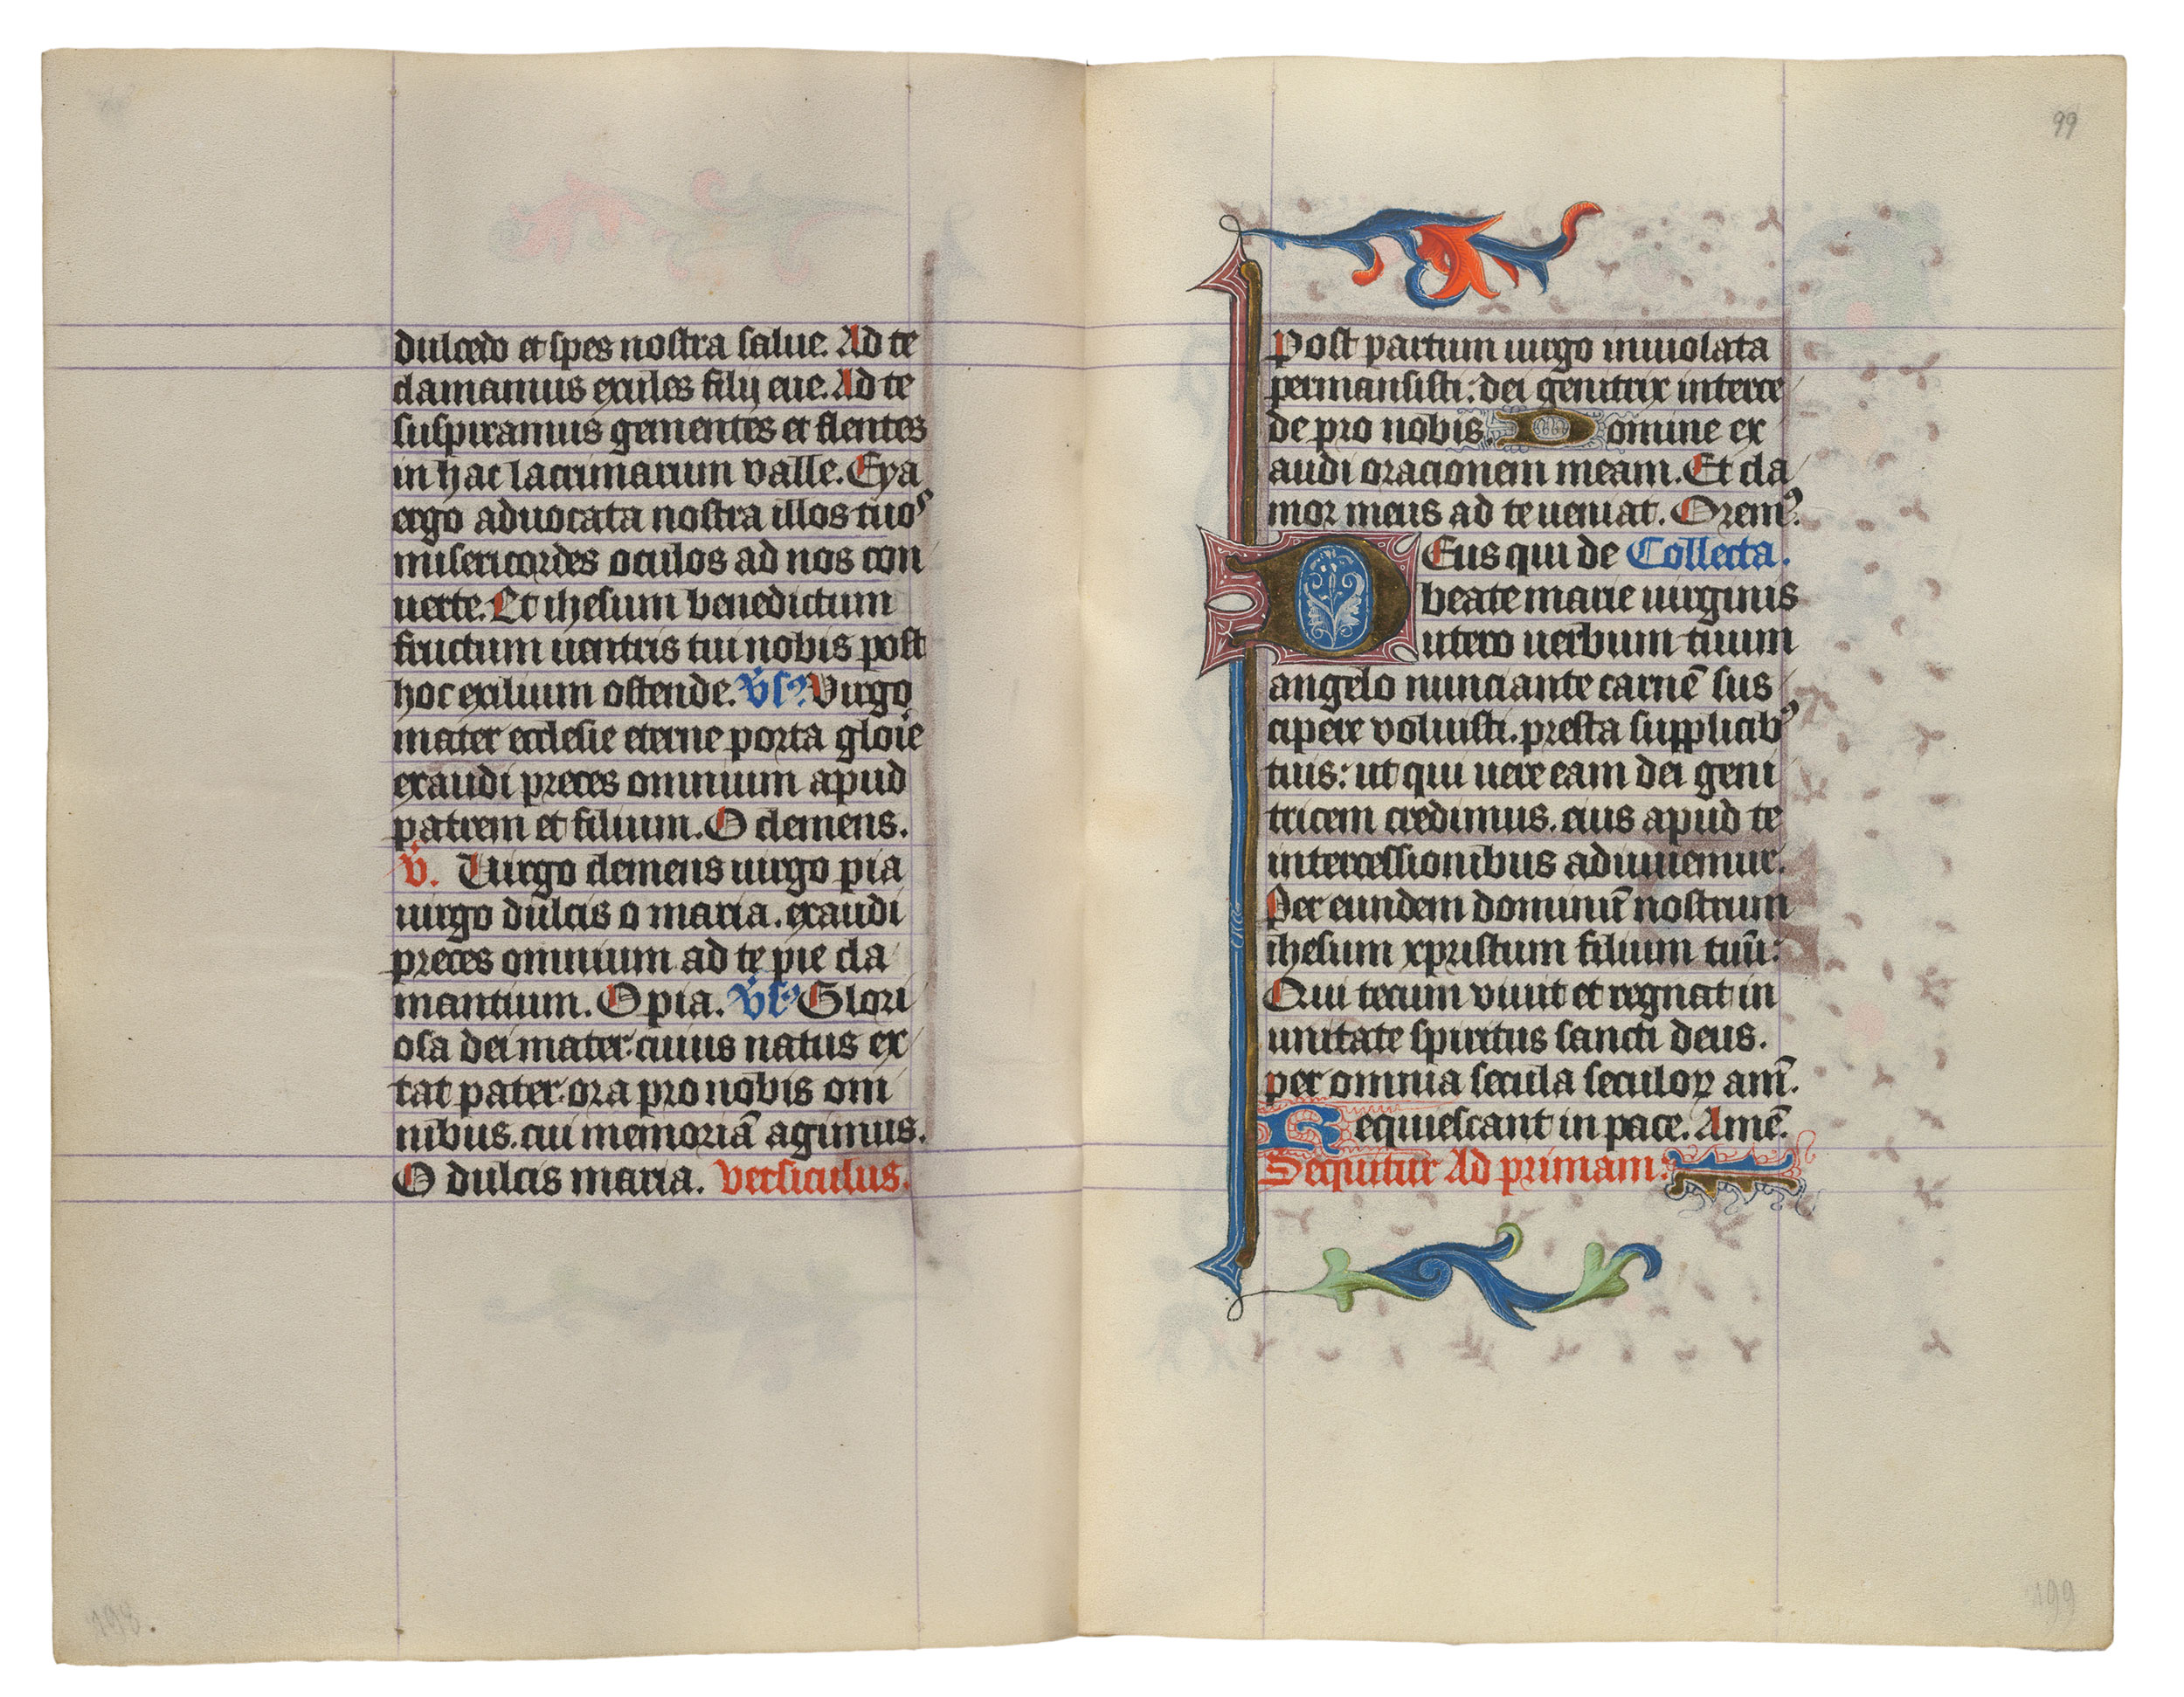 dulcedo et spes nostra salue. Ad te
clamamus exules filij eue. Ad te
suspiramus gementes et flentes
in hac lacrimarum valle. Eya
ergo aduocata nostra illos tuos
misericordes oculos ad nos con
uerte. Et ihesum benedictum
fructum uentris tui nobis post
hoc exilium ostende. v̄sꝰ Virgo
mater ecclesie eterne porta glo̅ie
exaudi preces omnium apud
patrem et filium. O clemens.
v̄. Uirgo clemens uirgo pia
uirgo dulcis o maria. exaudi
preces omnium ad te pie cla
mantium. O pia. v̄sꝰ Glori
osa dei mater: cuius natus ex
tat pater. ora pro nobis om
nibus. cui memoriā agimus.
O dulcis maria. versiculus.
198.
99
Post partum uirgo inuiolata
permansisti: dei genitrix interce
de pro nobis. Domine ex
audi oracionem meam. Et cla
mor meus ad te ueniat. Oremꝰ.
DEus qui de Collecta.
beate marie uirginis
utero uerbum tuum
angelo nunciante carnē sus
cipere voluisti. presta supplicibꝰ
tuis: ut qui uere eam dei geni
tricem credimus. eius apud te
intercessionibus adiuuemur.
Per eundem dominū nostrum
ihesum xpristum filium tuū:
Qui tecum viuit et regnat in
unitate spiritus sancti deus.
per omnia secula seculoꝝ am̄.
Requiescant in pace. Amē.
Sequitur Ad primam:
199